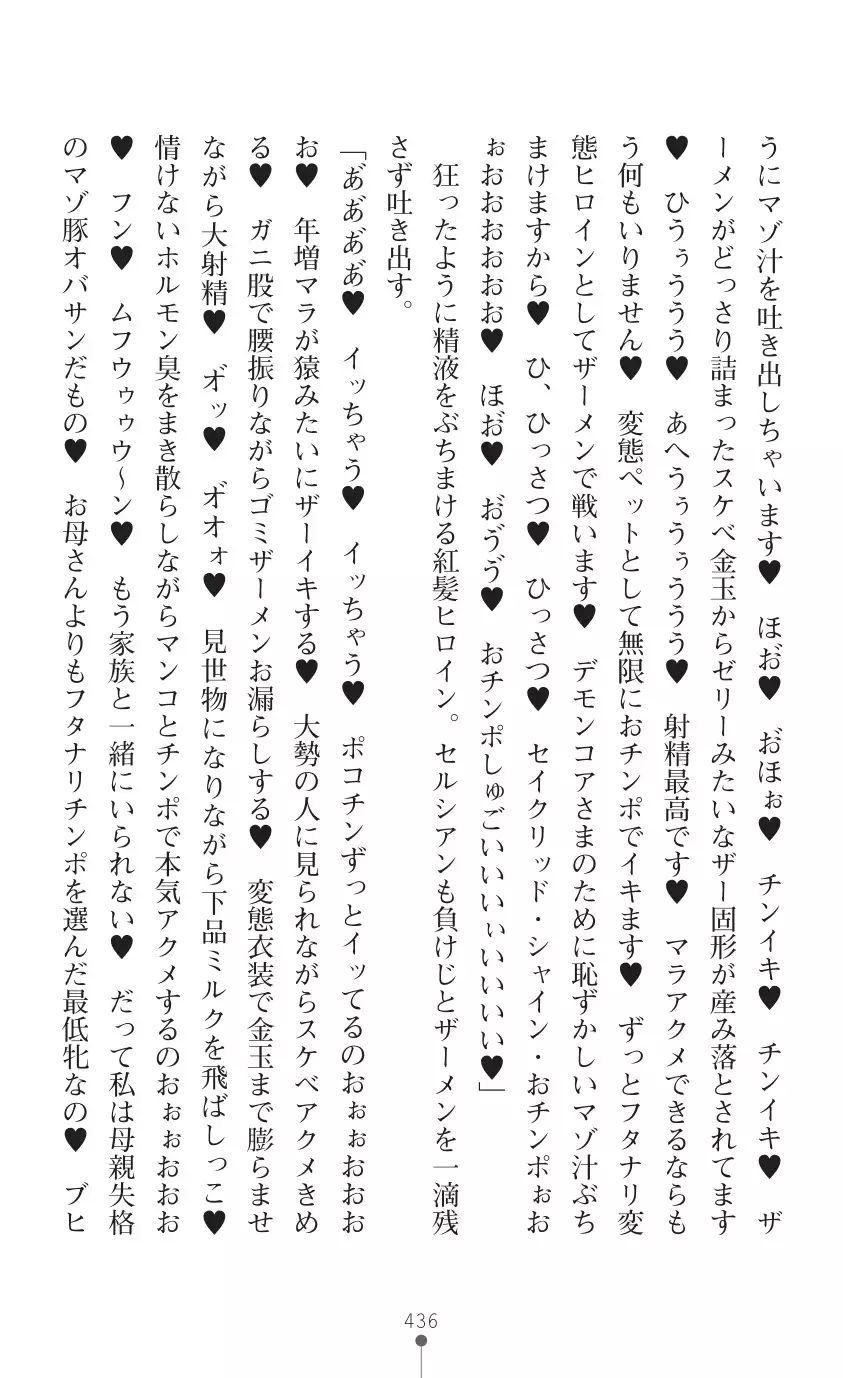 うにマゾ汁を吐き出しちゃいます♥　ほお゙♥　お゙ほぉ♥　チンイキ♥　チンイキ♥　ザ
ーメンがどっさり詰まったスケベ金玉からゼリーみたいなザー固形が産み落とされてます
♥　ひうぅううう♥　あへうぅうぅううう♥　射精最高です♥　マラアクメできるならも
う何もいりません♥　変態ペットとして無限におチンポでイキます♥　ずっとフタナリ変
態ヒロインとしてザーメンで戦います♥　デモンコアさまのために恥ずかしいマゾ汁ぶち
まけますから♥　ひ、ひっさつ♥　ひっさつ♥　セイクリッド・シャイン・おチンポぉお
ぉおおおおおお♥　ほお゙♥　お゙ゔゔ♥　おチンポしゅごいいいぃいいいい♥」
　狂ったように精液をぶちまける紅髪ヒロイン。セルシアンも負けじとザーメンを一滴残
さず吐き出す。
「あ゙あ゙あ゙あ゙♥　イッちゃう♥　イッちゃう♥　ポコチンずっとイッてるのおぉぉおおお
お♥　年増マラが猿みたいにザーイキする♥　大勢の人に見られながらスケベアクメきめ
る♥　ガニ股で腰振りながらゴミザーメンお漏らしする♥　変態衣装で金玉まで膨らませ
ながら大射精♥　オ゙ッ♥　オ゙オォ♥　見世物になりながら下品ミルクを飛ばしっこ♥
情けないホルモン臭をまき散らしながらマンコとチンポで本気アクメするのおぉぉおおお
♥　フン♥　ムフウゥゥウ～ン♥　もう家族と一緒にいられない♥　だって私は母親失格
のマゾ豚オバサンだもの♥　お母さんよりもフタナリチンポを選んだ最低牝なの♥　ブヒ
436